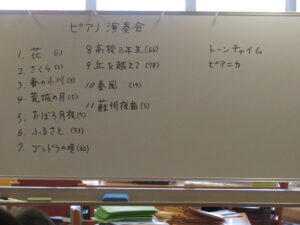 ピアノ演奏会
1. 花 (1)
2. さくら (2)
3. 春の小川 (3)
4. 荒城の月 (5)
5. おぼろ月夜 (7)
6. ふるさと (33)
7. ゴンドラの唄 (60)
8 高校三年生 (66)
9 丘を越えて (78)
10 春風 (19)
11 蘇州夜曲 (5)
トーンチャイム
ピアニカ